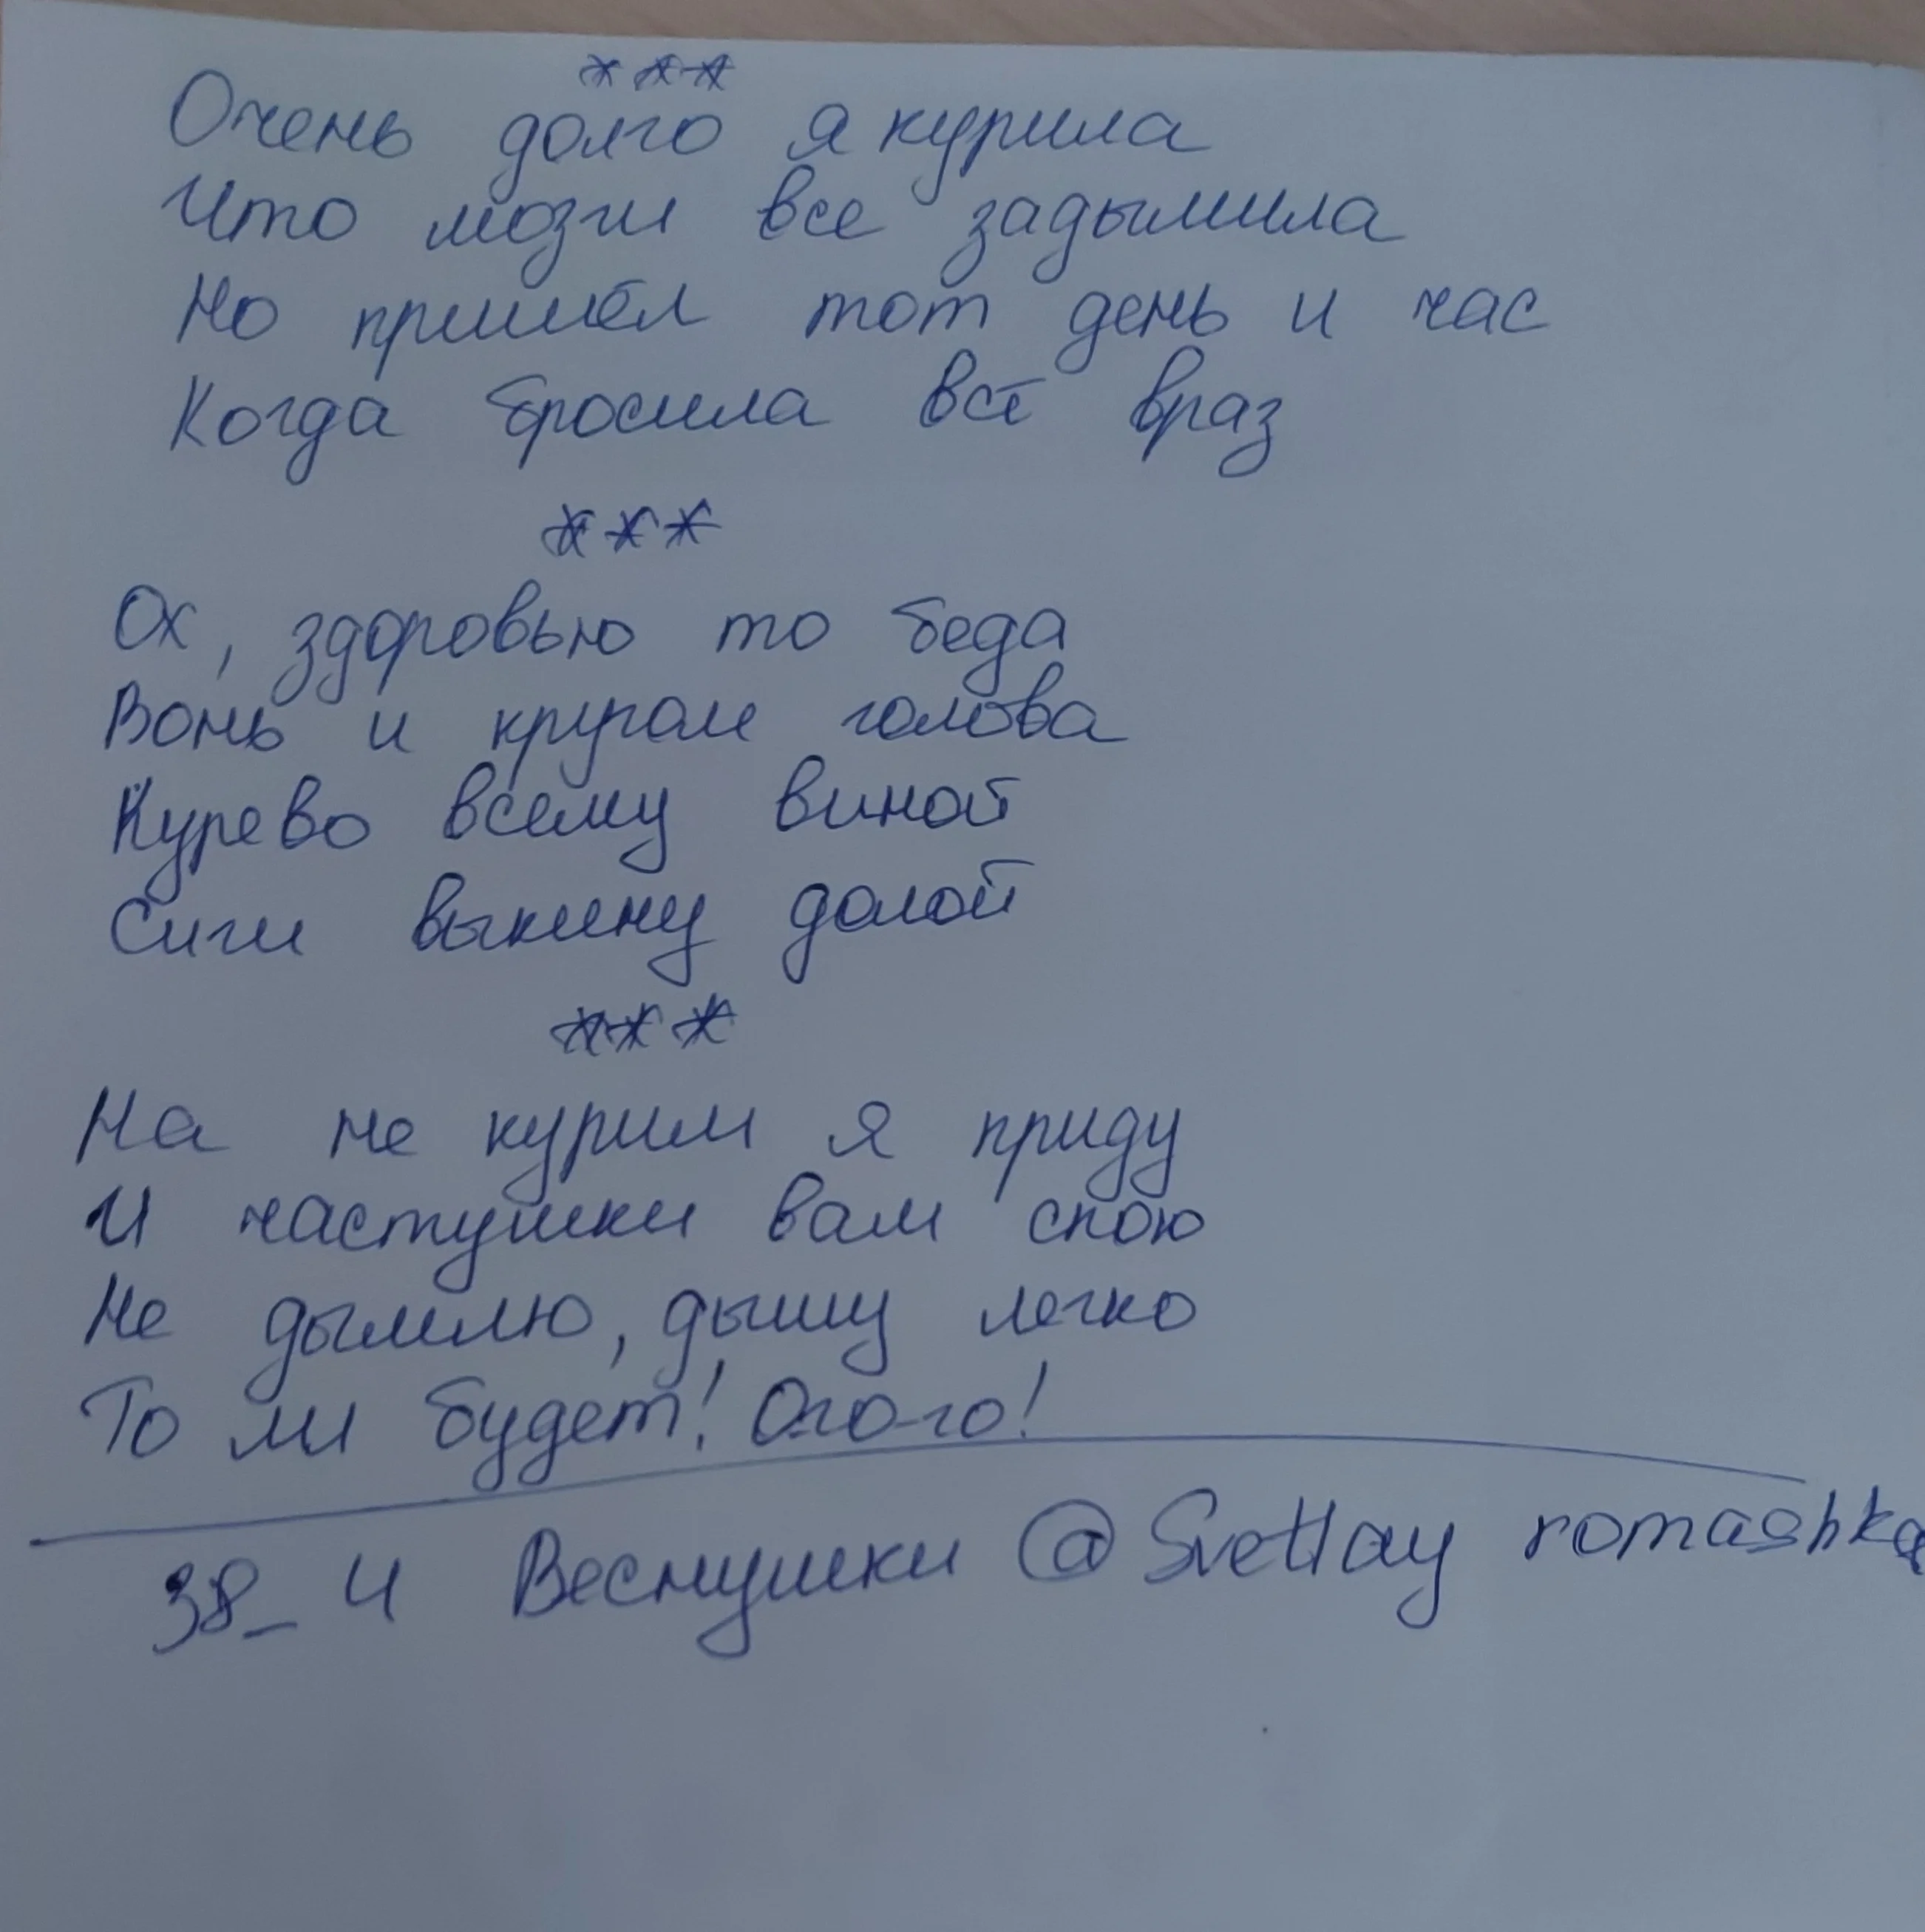 ***
Очень долго я курила
Что мозги все задымила
Но пришёл тот день и час
Когда бросила всё враз
***
Ох, здоровью то беда
Вонь и кругом голова
Курево всему виной
Сиги выкину долой
***
На не курим я приду
И частушки вам спою
Не дымлю, дышу легко
То ли будет! Ого-го!
38_4 Веснушки @Svetlay romashka